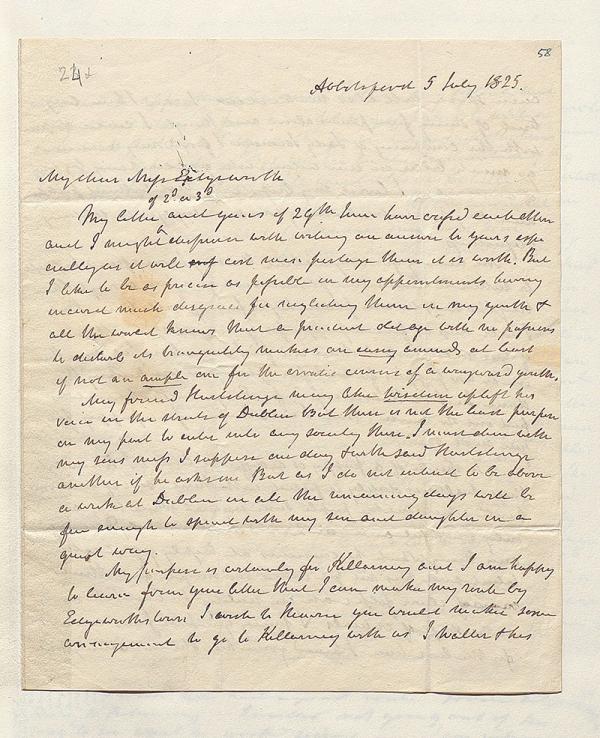 58
Abbotsford 5 July 1825.
My dear Miss Edgeworth
of 2d or 3d
My letter and yours of 29th June have crossed each other
and I might dispense with writing an answer to yours espe
cially as it will cost more postage than it is worth. But
I like to be as precise as possible in my appointments having
incurred much disgrace for neglecting them in my youth &
all the world knows that a prudent old age with no passions
to disturb its tranquillity makes an easy amends at least
if not an ample one for the erratic courses of a wayward youth.
My friend Hartstonge may like wisdom uplift his
voice in the streets of Dublin But there is not the least purpose
on my part to enter into any society there. I must dine with
my sons mess I suppose one day & with said Hartstonge
another if he asks me But as I do not intend to be above
a week at Dublin in all the remaining days will be
few enough to spend with my son and daughter in a
quiet way.
My purpose is certainly for Killarney and I am happy
to learn from your letter that I can make my route by
Edgeworthstown I wish to Heaven you would make some
arrangement to go to Killarney with us I Walter & his